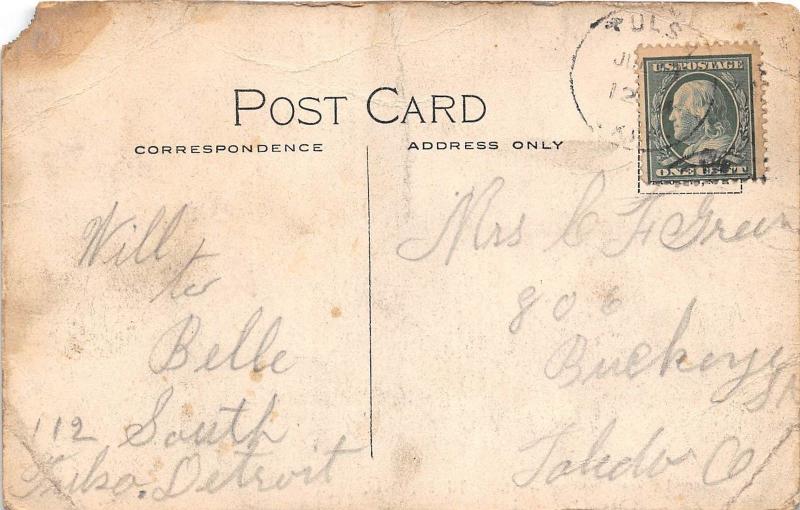 TULS
JU
12
U.S. POSTAGE
ONE CENT
POST CARD
CORRESPONDENCE
ADDRESS ONLY
Will
to
Belle
112 South
Tulsa. Detroit
Mrs C F Green
806
Buckeye
St
Toledo O